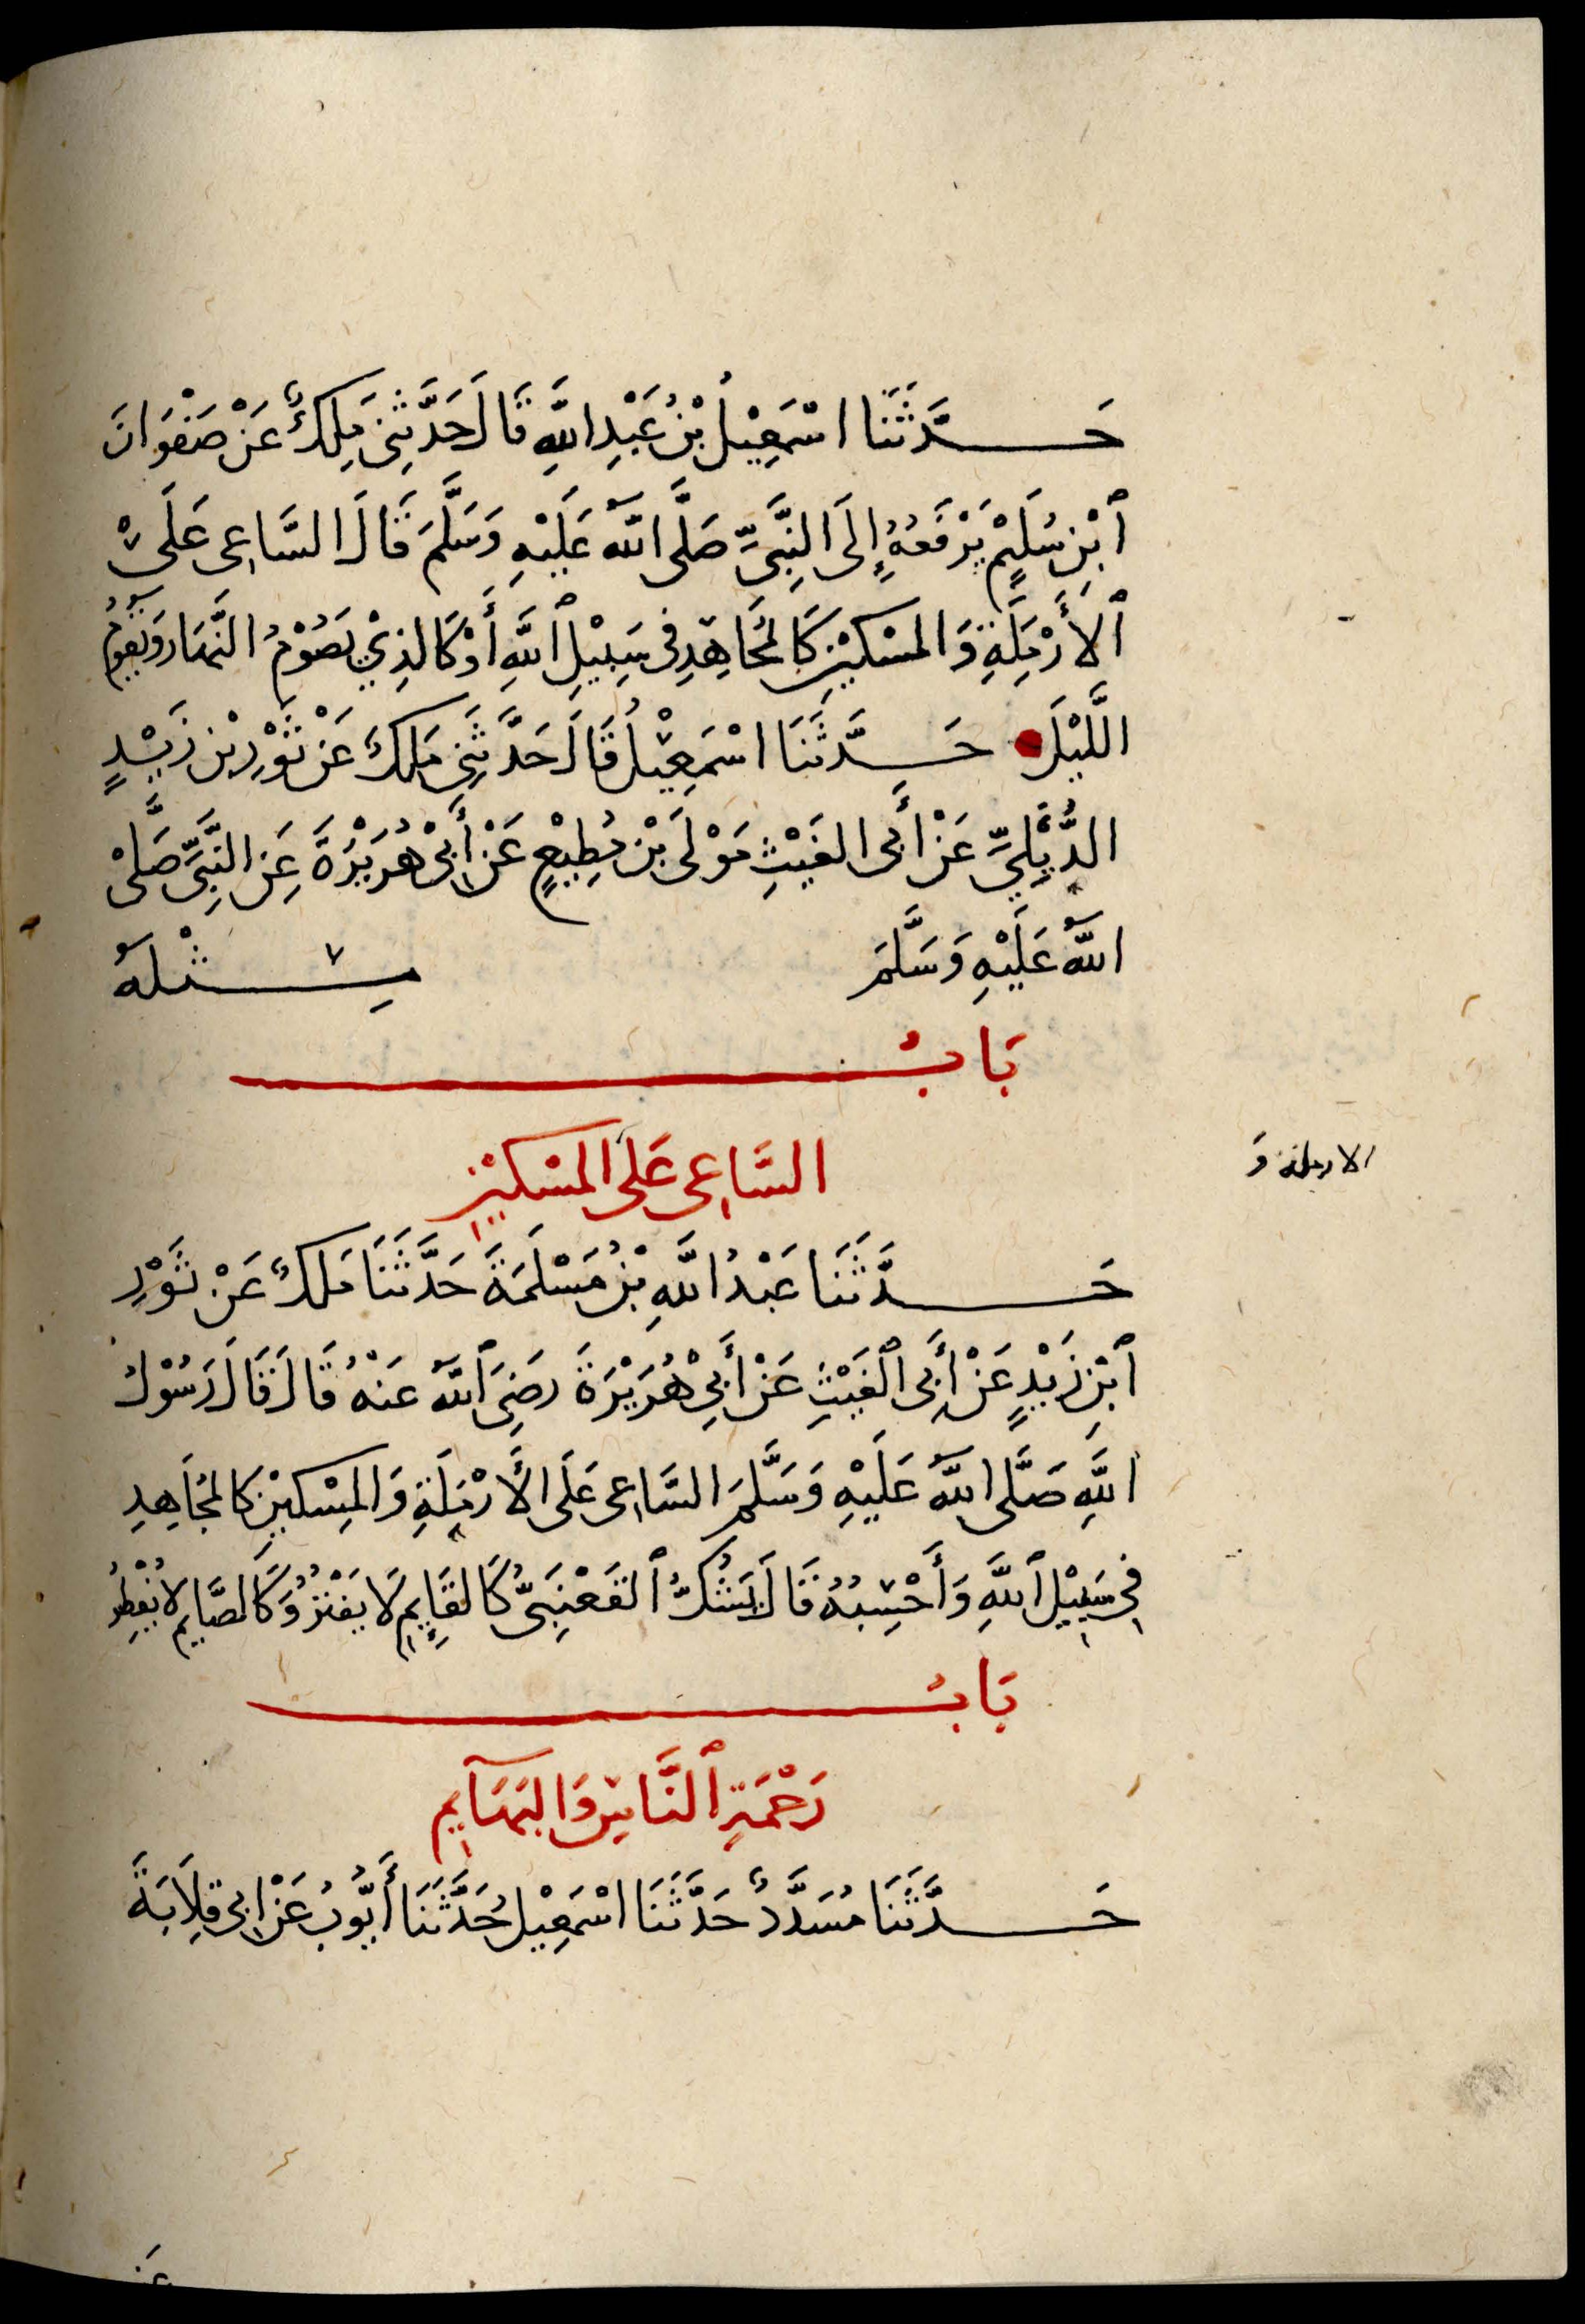 حَدَّثَنَا اسْمَعِيْلُ بْنُ عَبْدِ اللَّهِ قَالَ حَدَّثَنِى مَلِكٌ عَنْ صَفْوَانَ
ٱبْنِ سُلَيْمٍ يَرْفَعُهُ إِلَى النَّبِىِّ صَلَّى اللَّهُ عَلَيْهِ وَسَلَّمَ قَالَ السَّاعِى عَلَى
ٱلأَرْمَلَةِ وَالمسْكِيْنِ كَالمُجَاهِدِ فى سَبِيْلِ ٱللَّهِ أَوْ كَالذِيْ يَصُوْمُ النَّهَارَ وَيَقُوْمُ
اللَّيْلَ حَدَّثَنَا اسْمَعِيْلُ قَالَ حَدَّثَنِى مَلِكٌ عَنْ ثَوْرِ بْنِ زَيْدٍ
الدِّيْلِيِّ عَنْ أَبى الغَيْثِ مَوْلَى بْنِ مُطِيْعٍ عَنْ أَبِىْ هُرَيْرَةَ عَنِ النَّبِىِّ صَلَّى
اللَّهُ عَلَيْهِ وَسَلَّمَ مِثْلَهُ
بَابُ
السَّاعِى عَلَى المسْكِيْنِ
الارملة وَ
حَدَّثَنَا عَبْدُ اللَّهِ بْنُ مَسْلَمَةَ حَدَّثَنَا مَلِكٌ عَنْ ثَوْرِ
ٱبْنِ زَيْدٍ عَنْ أَبِى ٱلْغَيْثِ عَنْ أَبِيْ هُرَيْرَةَ رَضِىَ ٱللَّهُ عَنْهُ قَالَ قَالَ رَسُوْلُ
اللَّهِ صَلَّى اللَّهُ عَلَيْهِ وَسَلَّمَ السَّاعِى عَلَى الأَرْمَلَةِ وَالمِسْكِيْنِ كَالمُجَاهِدِ
فِى سَبِيْلِ ٱللَّهِ وَأَحْسِبُهُ قَالَ يَشُكُّ ٱلقَعْنَبِىُّ كَالقَايِمِ لَا يَفْتُرُ وَكَالصَّايِمِ لَا يُفْطِرُ
بَابُ
رَحْمَةِ ٱلنَّاسِ وَالبَهَآيِمِ
حَدَّثَنَا مُسَدَّدٌ حَدَّثَنَا اسْمَعِيْلُ حَدَّثَنَا أَيُّوبُ عَنْ ابى قِلَابَةَ
عَنْ